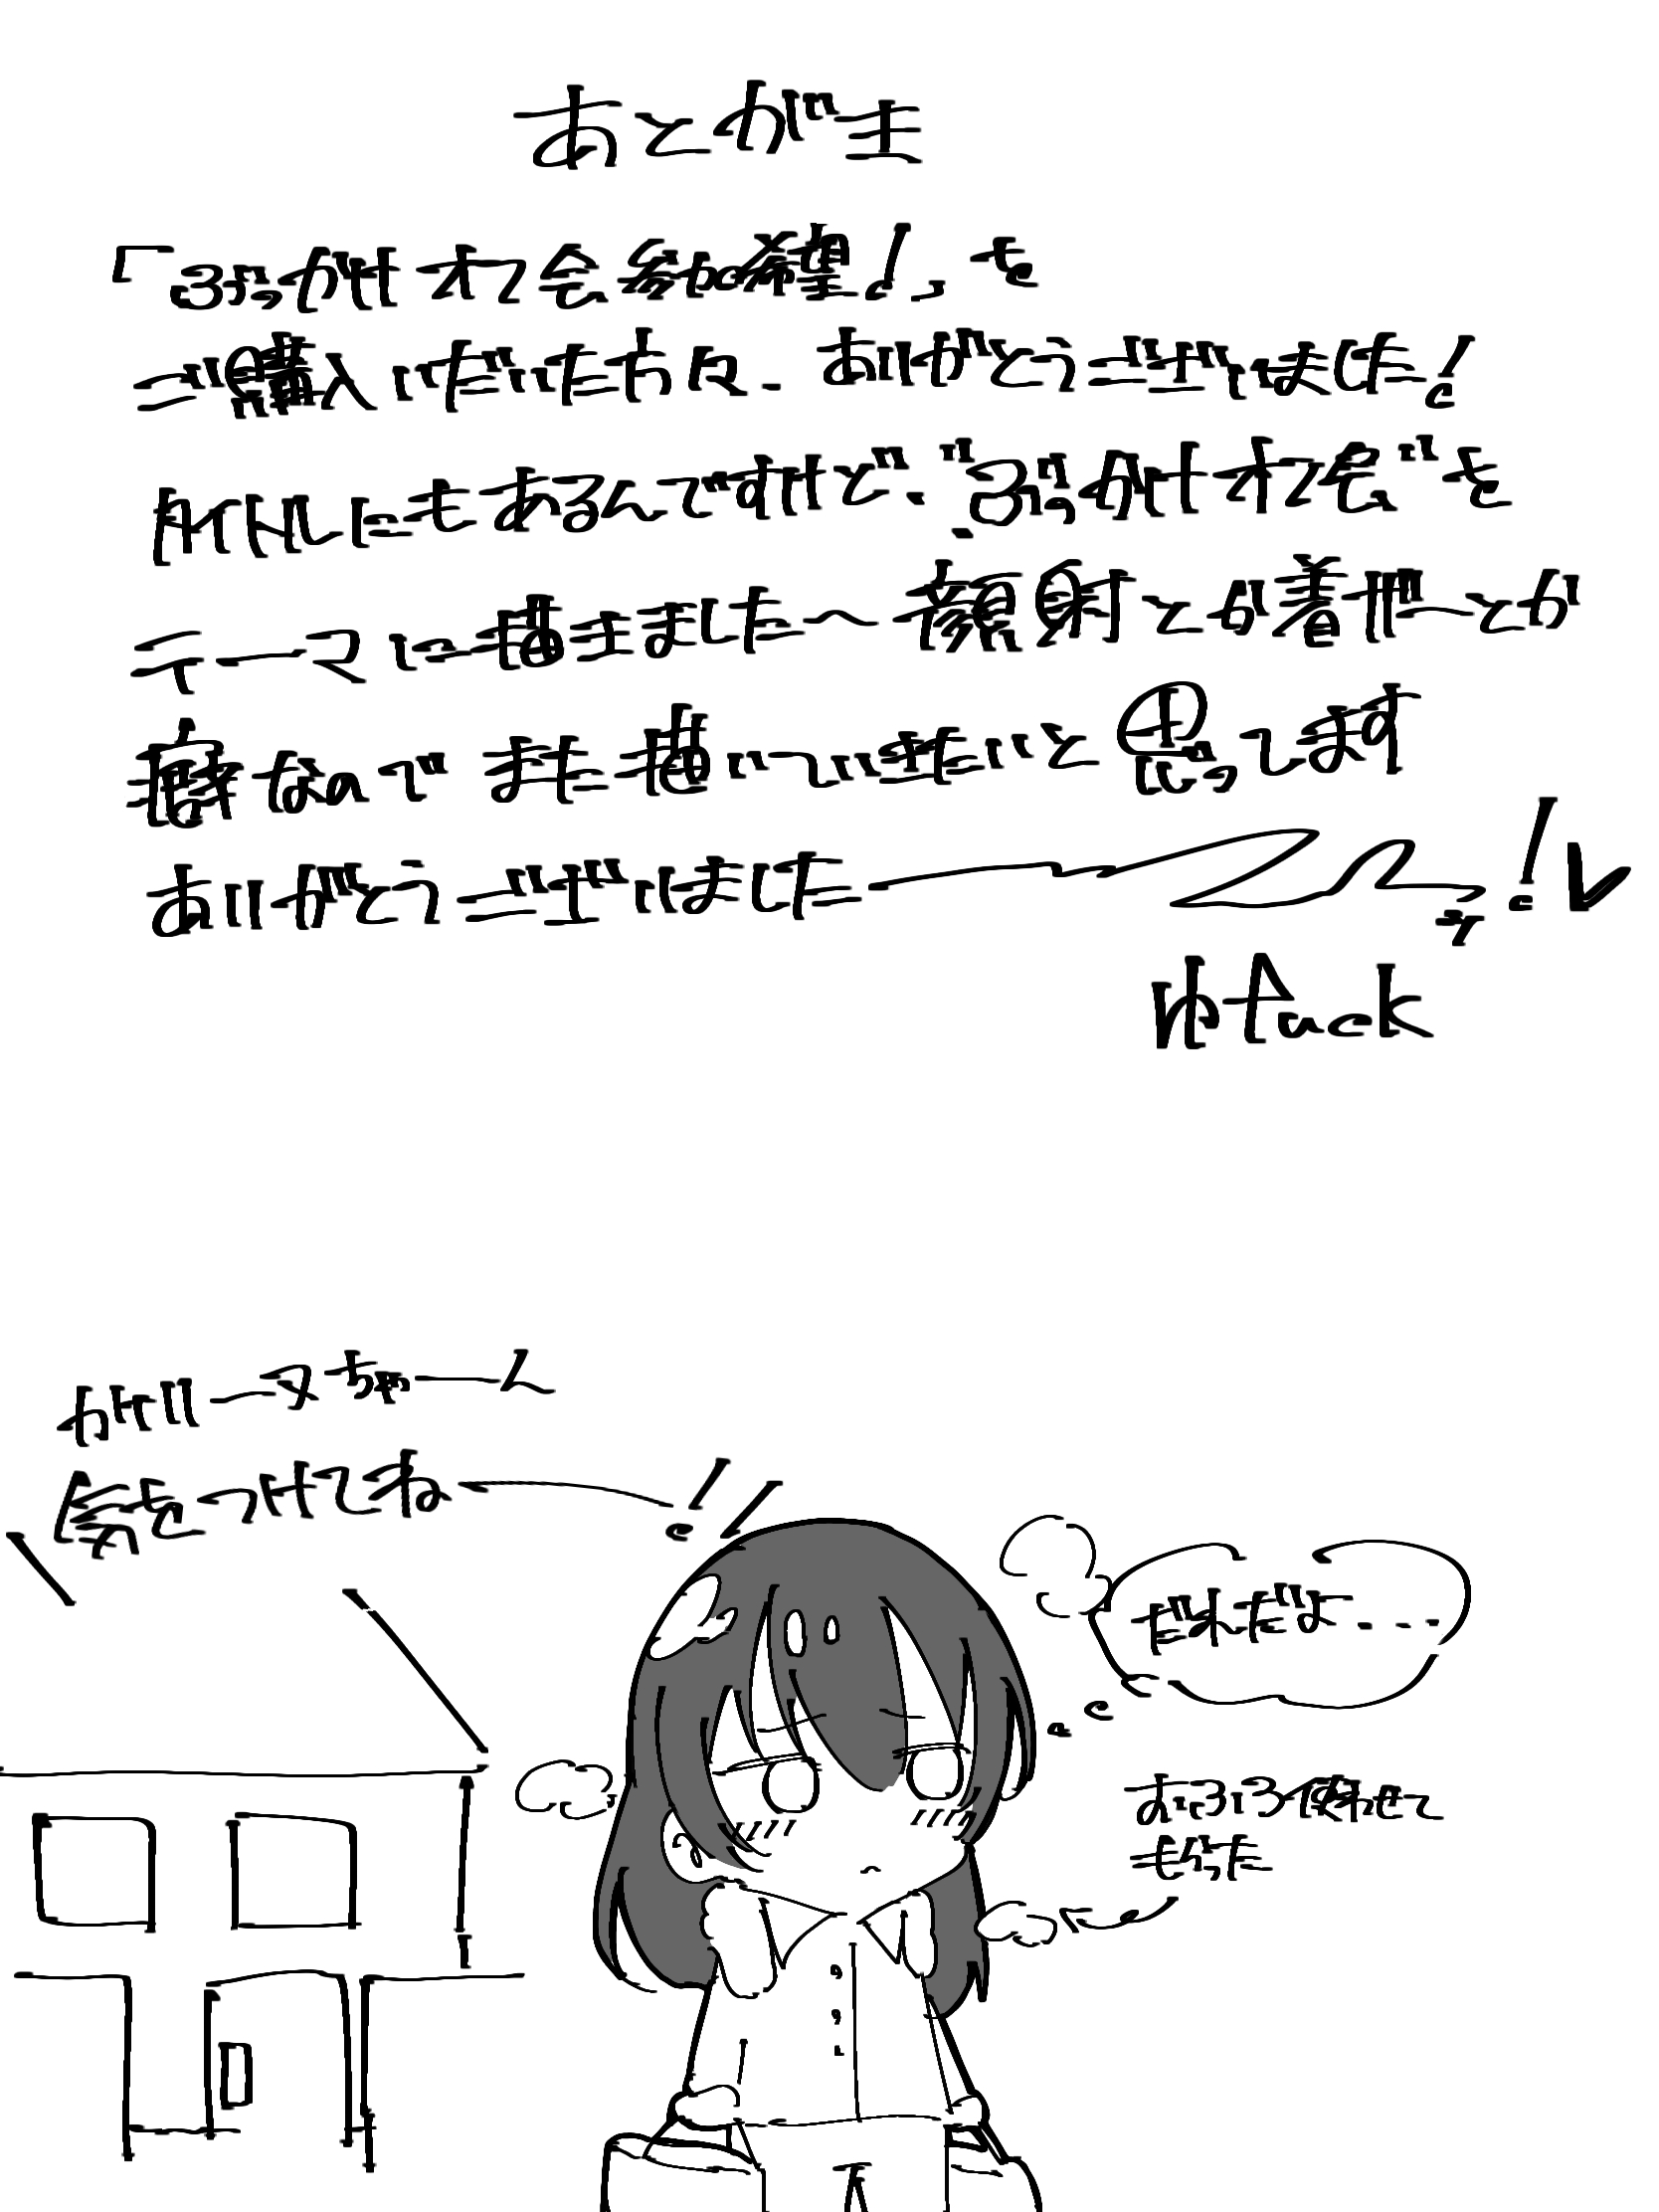 あとがき
「ぶっかけオフ会参加希望!」を
ご購入いただいた方々、ありがとうございました!
タイトルにもあるんですけど、"ぶっかけオフ会"を
テーマに描きました〜顔射とか着ザーとか
癖なのでまた描いていきたいと思ってます
ありがとうございました
ゆtuck
ガリーヌちゃーん
気をつけてね——!!
だれだよ...
おふろ使わせて
もらった